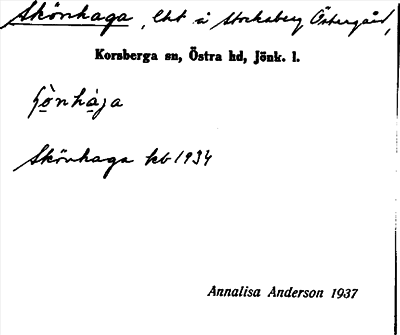 Skönhaga, lht å Stocksberg Östergård,
Korsberga sn, Östra hd, Jönk. l.
Skönhaga kb 1934
Annalisa Anderson 1937